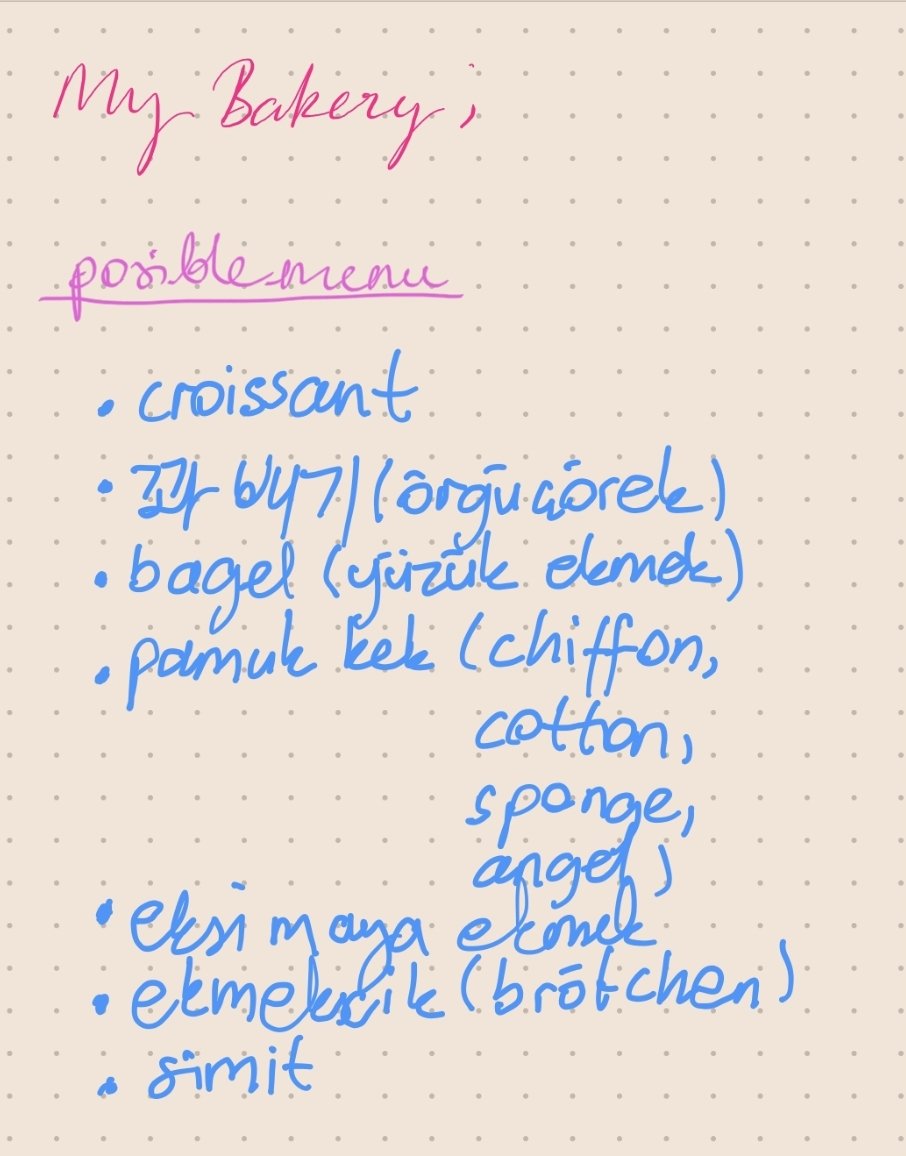 My Bakery;
posible menu
• croissant
• 꽈배기 (örgü çörek)
• bagel (yüzük ekmek)
• pamuk kek (chiffon,
cotton,
sponge,
angel)
• ekşi maya ekmek
• ekmekçik (brötchen)
• simit